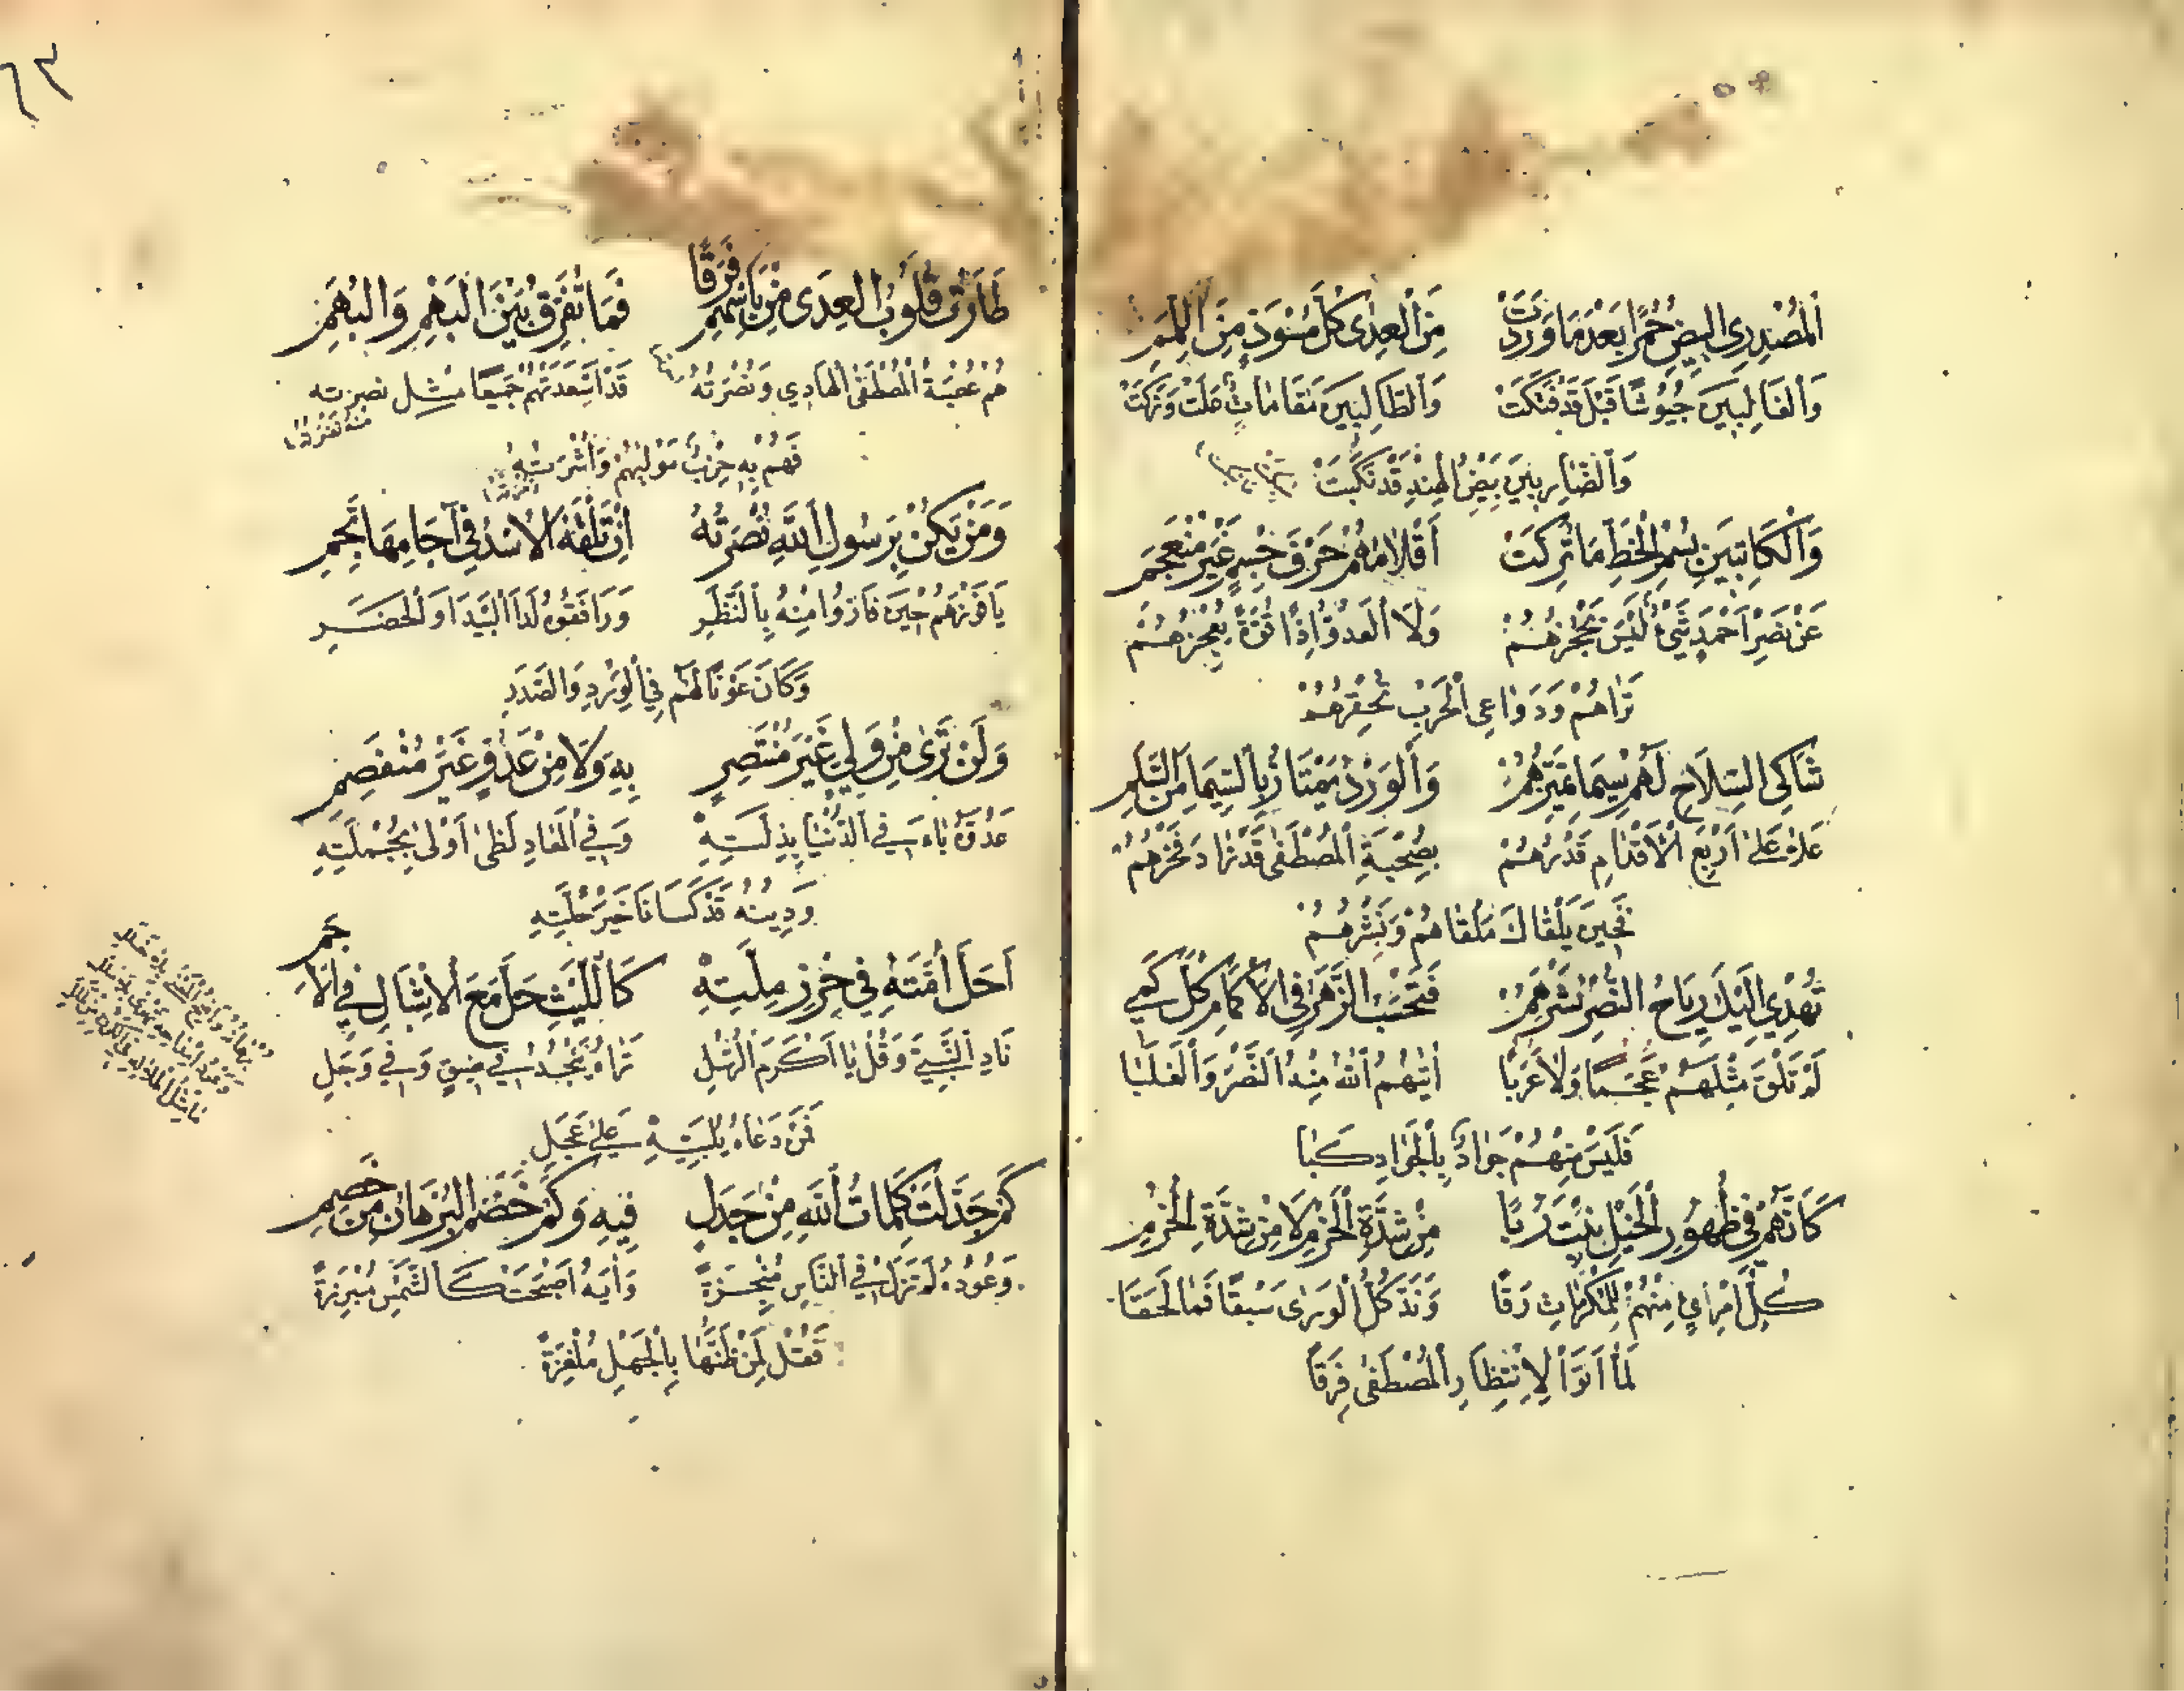 اَلْمُصْدِرِي الْبِيضَ حُمْرًا بَعْدَ مَا وَرَدَتْ مِنَ الْعِدٰى كُلَّ مُسْوَدٍّ مِنَ اللِّمَمِ
وَالْغَالِبِينَ جُيُوشًا قَبْلُ قَدْ فَتَكَتْ وَالطَّالِبِينَ مَقَامَاتٍ عَلَتْ وَزَكَتْ
وَالضَّارِبِينَ بِبَيْضِ الْهِنْدِ قَدْ نَكَبَتْ
وَالْكَاتِبِينَ بِسُمْرِ الْخَطِّ مَا تَرَكَتْ أَقْلَامُهُمْ حَرْفَ جِسْمٍ غَيْرَ مُنْعَجِمِ
عَنْ نَصْرِ أَحْمَدَ شَيْءٌ لَيْسَ يُعْجِزُهُمْ وَلَا الْعَدُوُّ إِذَا يُعْجِزُهُمْ
تَرَاهُمْ وَدَوَاعِي الْحَرْبِ تَحْفِزُهُمْ
شَاكِي السِّلَاحِ لَهُمْ سِيمَا تُمَيِّزُهُمْ وَالْوَرْدُ يَمْتَازُ بِالسِّيمَا مِنَ السَّلَمِ
عَلَتْ عَلَى أَرْبَعِ الْأَقْدَامِ قَدْرُهُمْ بِصُحْبَةِ الْمُصْطَفٰى قَدْ زَادَ فَخْرُهُمْ
فَحِينَ يَلْقَاكَ مَلْقَاهُمْ وَبِشْرُهُمْ
تُهْدِي إِلَيْكَ رِيَاحُ النَّصْرِ نَشْرَهُمْ فَتَحْسَبُ الزَّهْرَ فِي الْأَكْمَامِ كُلَّ كَمِي
لَمْ تَلْقَ مِثْلَهُمْ عَجَمًا وَلَا عَرَبًا أَتَيهُمُ اللهُ مِنْهُ النَّصْرَ وَالْغَلَبَا
فَلَيْسَ مِنْهُمْ جَوَادٌ بِالْجَوَادِ كَبَا
كَأَنَّهُمْ فِي ظُهُورِ الْخَيْلِ نَبْتُ رُبًا مِنْ شِدَّةِ الْحَزْمِ لَا مِنْ شِدَّةِ الْحُزُمِ
كُلُّ امْرِئٍ مِنْهُمْ لِلْمَكْرُمَاتِ رَقَا وَبَذَّ كُلَّ الْوَرٰى سَبْقًا فَمَا لُحِقَا
لَمَّا أَتَوْا لِانْتِظَارِ الْمُصْطَفٰى فِرَقًا
٦٣
طَارَتْ قُلُوبُ الْعِدَى مِنْ بَأْسِهِمْ فَرَقًا فَمَا تُفَرِّقُ بَيْنَ الْبَهْمِ وَالْبُهَمِ
هُمْ عُصْبَةُ الْمُصْطَفٰى الْهَادِي وَنُصْرَتُهُ قَدْ أَسْعَدَتْهُمْ جَمِيعًا مِثْلُ نَصْرَتِهِ
فَهُمْ بِهِ حِزْبُ مَوْلٰيهُمْ وَأُسْرَتُهُ
وَمَنْ يَكُنْ بِرَسُولِ اللهِ نُصْرَتُهُ إِنْ تَلْقَهُ الْأُسْدُ فِي آجَامِهَا تَجِمِ
يَا فَوْزَهُمْ حِينَ فَازُوا مِنْهُ بِالنَّظَرِ وَرَافَقُوهُ لَدَا الْبَيْدَا وَالْحَضَرِ
وَكَانَ عَوْنًا لَهُمْ فِي الْوِرْدِ وَالصَّدَرِ
وَلَنْ تَرٰى مِنْ وَلِيٍّ غَيْرَ مُنْتَصِرٍ بِهِ وَلَا مِنْ عَدُوٍّ غَيْرَ مُنْفَصِمِ
عَدُوُّهُ بَاءَ فِي الدُّنْيَا بِذِلَّتِهِ وَفِي الْمَعَادِ لَظٰى أَوْلٰى بِجُمْلَتِهِ
وَدِينُهُ قَدْ كَسَانَا خَيْرَ حُلَّتِهِ
أَحَلَّ أُمَّتَهُ فِي حِرْزِ مِلَّتِهِ كَاللَّيْثِ حَلَّ مَعَ الْأَشْبَالِ فِي الْأَجَمِ
نَادِ النَّبِيَّ وَقُلْ يَا أَكْرَمَ الرُّسُلِ تَرَاهُ يُنْجِدُ فِي ضِيقٍ وَفِي وَجَلِ
فَمَنْ دَعَاهُ يُلَبِّيهِ عَلَى عَجَلِ
كَمْ جَدَّلَتْ كَلِمَاتُ اللهِ مِنْ جَدِلٍ فِيهِ وَكَمْ خَصَمَ الْبُرْهَانُ مِنْ خَصِمِ
وُعُودُهُ لَمْ تَزَلْ فِي النَّاسِ مُنْجَزَةً وَأٰيُهُ أَصْبَحَتْ كَالشَّمْسِ مُبْرَزَةً
فَقُلْ لِمَنْ ظَنَّهَا بِالْجَهْلِ مُلْغَزَةً